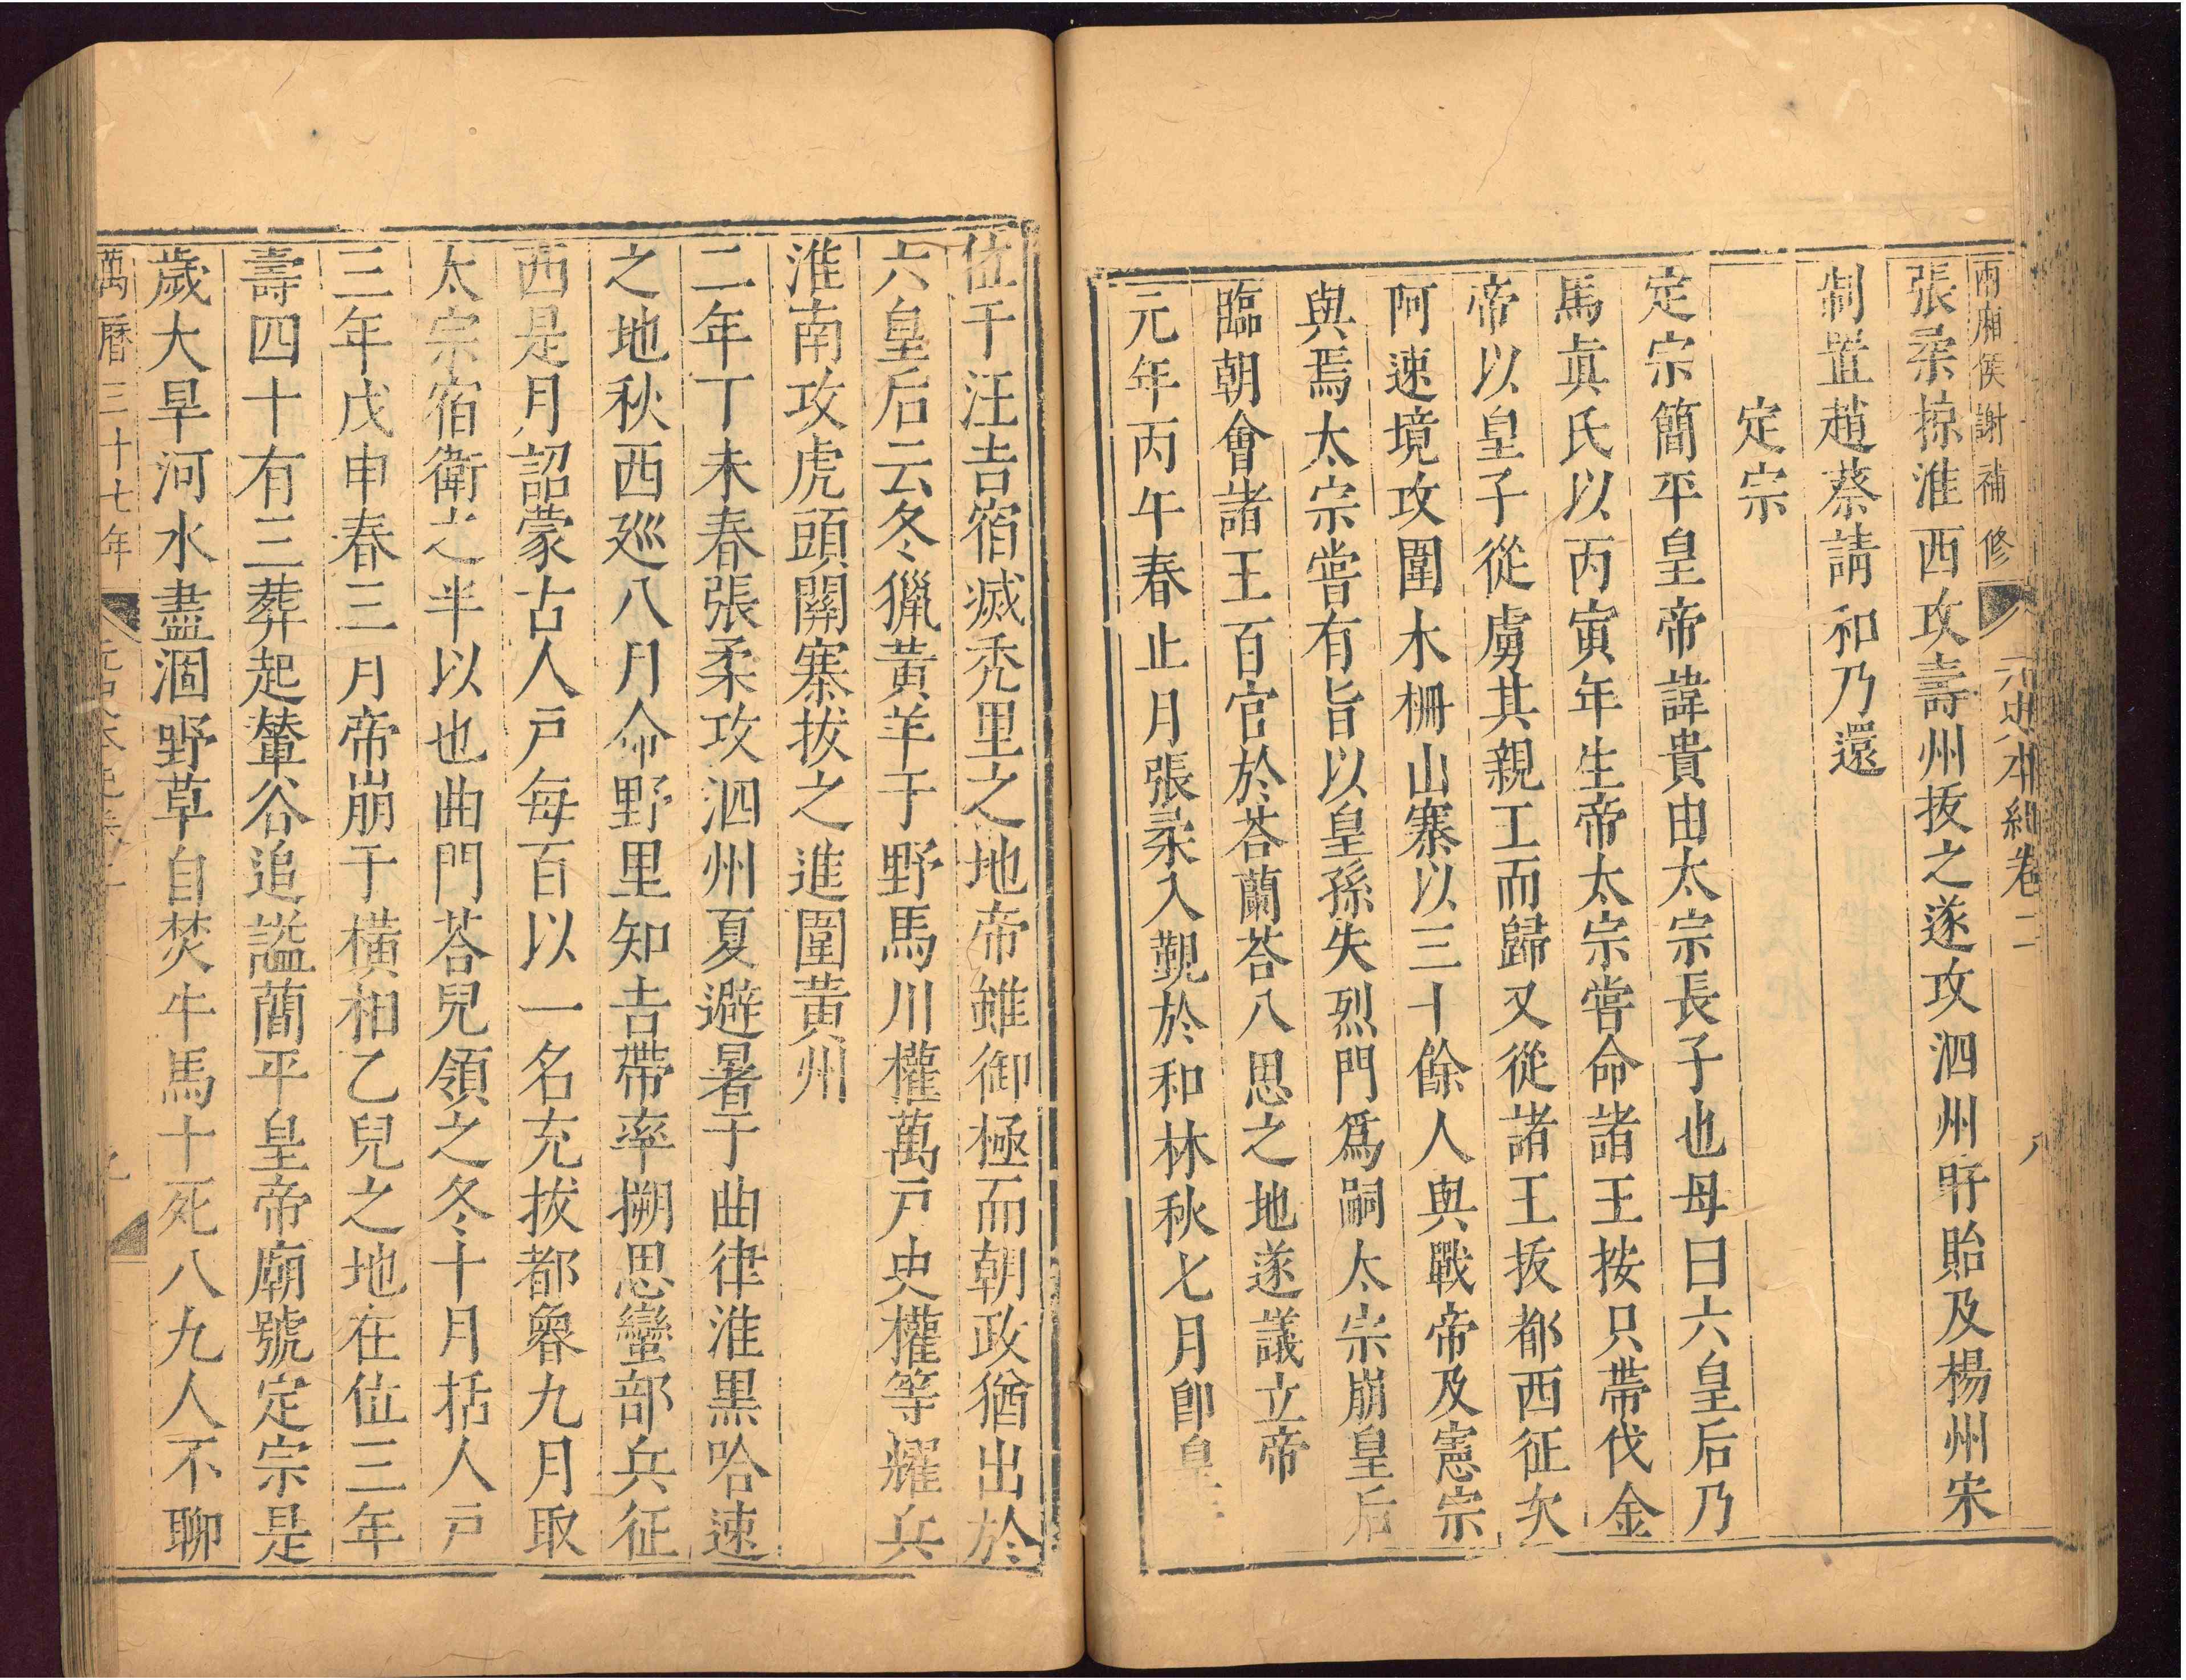 兩廂侯謝補修
元史本紀卷二
八
張柔掠淮西攻壽州拔之遂攻泗州盱眙及楊州宋
制置趙蔡請和乃還
定宗
定宗簡平皇帝諱貴由太宗長子也母曰六皇后乃
馬真氏以丙寅年生帝太宗嘗命諸王按只帶伐金
帝以皇子從虜其親王而歸又從諸王拔都西征次
阿速境攻圍木柵山寨以三十餘人與戰帝及憲宗
與焉太宗嘗有旨以皇孫失烈門爲嗣太宗崩皇后
臨朝會諸王百官於荅蘭荅八思之地遂議立帝
元年丙午春正月張柔入覲於和林秋七月卽皇
位于汪吉宿滅禿里之地帝雖御極而朝政猶出於
六皇后云冬獵黃羊于野馬川權萬戶史權等耀兵
淮南攻虎頭關寨拔之進圍黃州
二年丁未春張柔攻泗州夏避暑于曲律淮黑哈速
之地秋西廵八月命野里知吉帶率搠思蠻部兵征
西是月詔蒙古人戶每百以一名充拔都魯九月取
太宗宿衛之半以也曲門荅兒領之冬十月括人戶
三年戊申春三月帝崩于橫相乙兒之地在位三年
壽四十有三葬起輦谷追謚簡平皇帝廟號定宗是
歲大旱河水盡涸野草自焚牛馬十死八九人不聊
萬曆三十七年